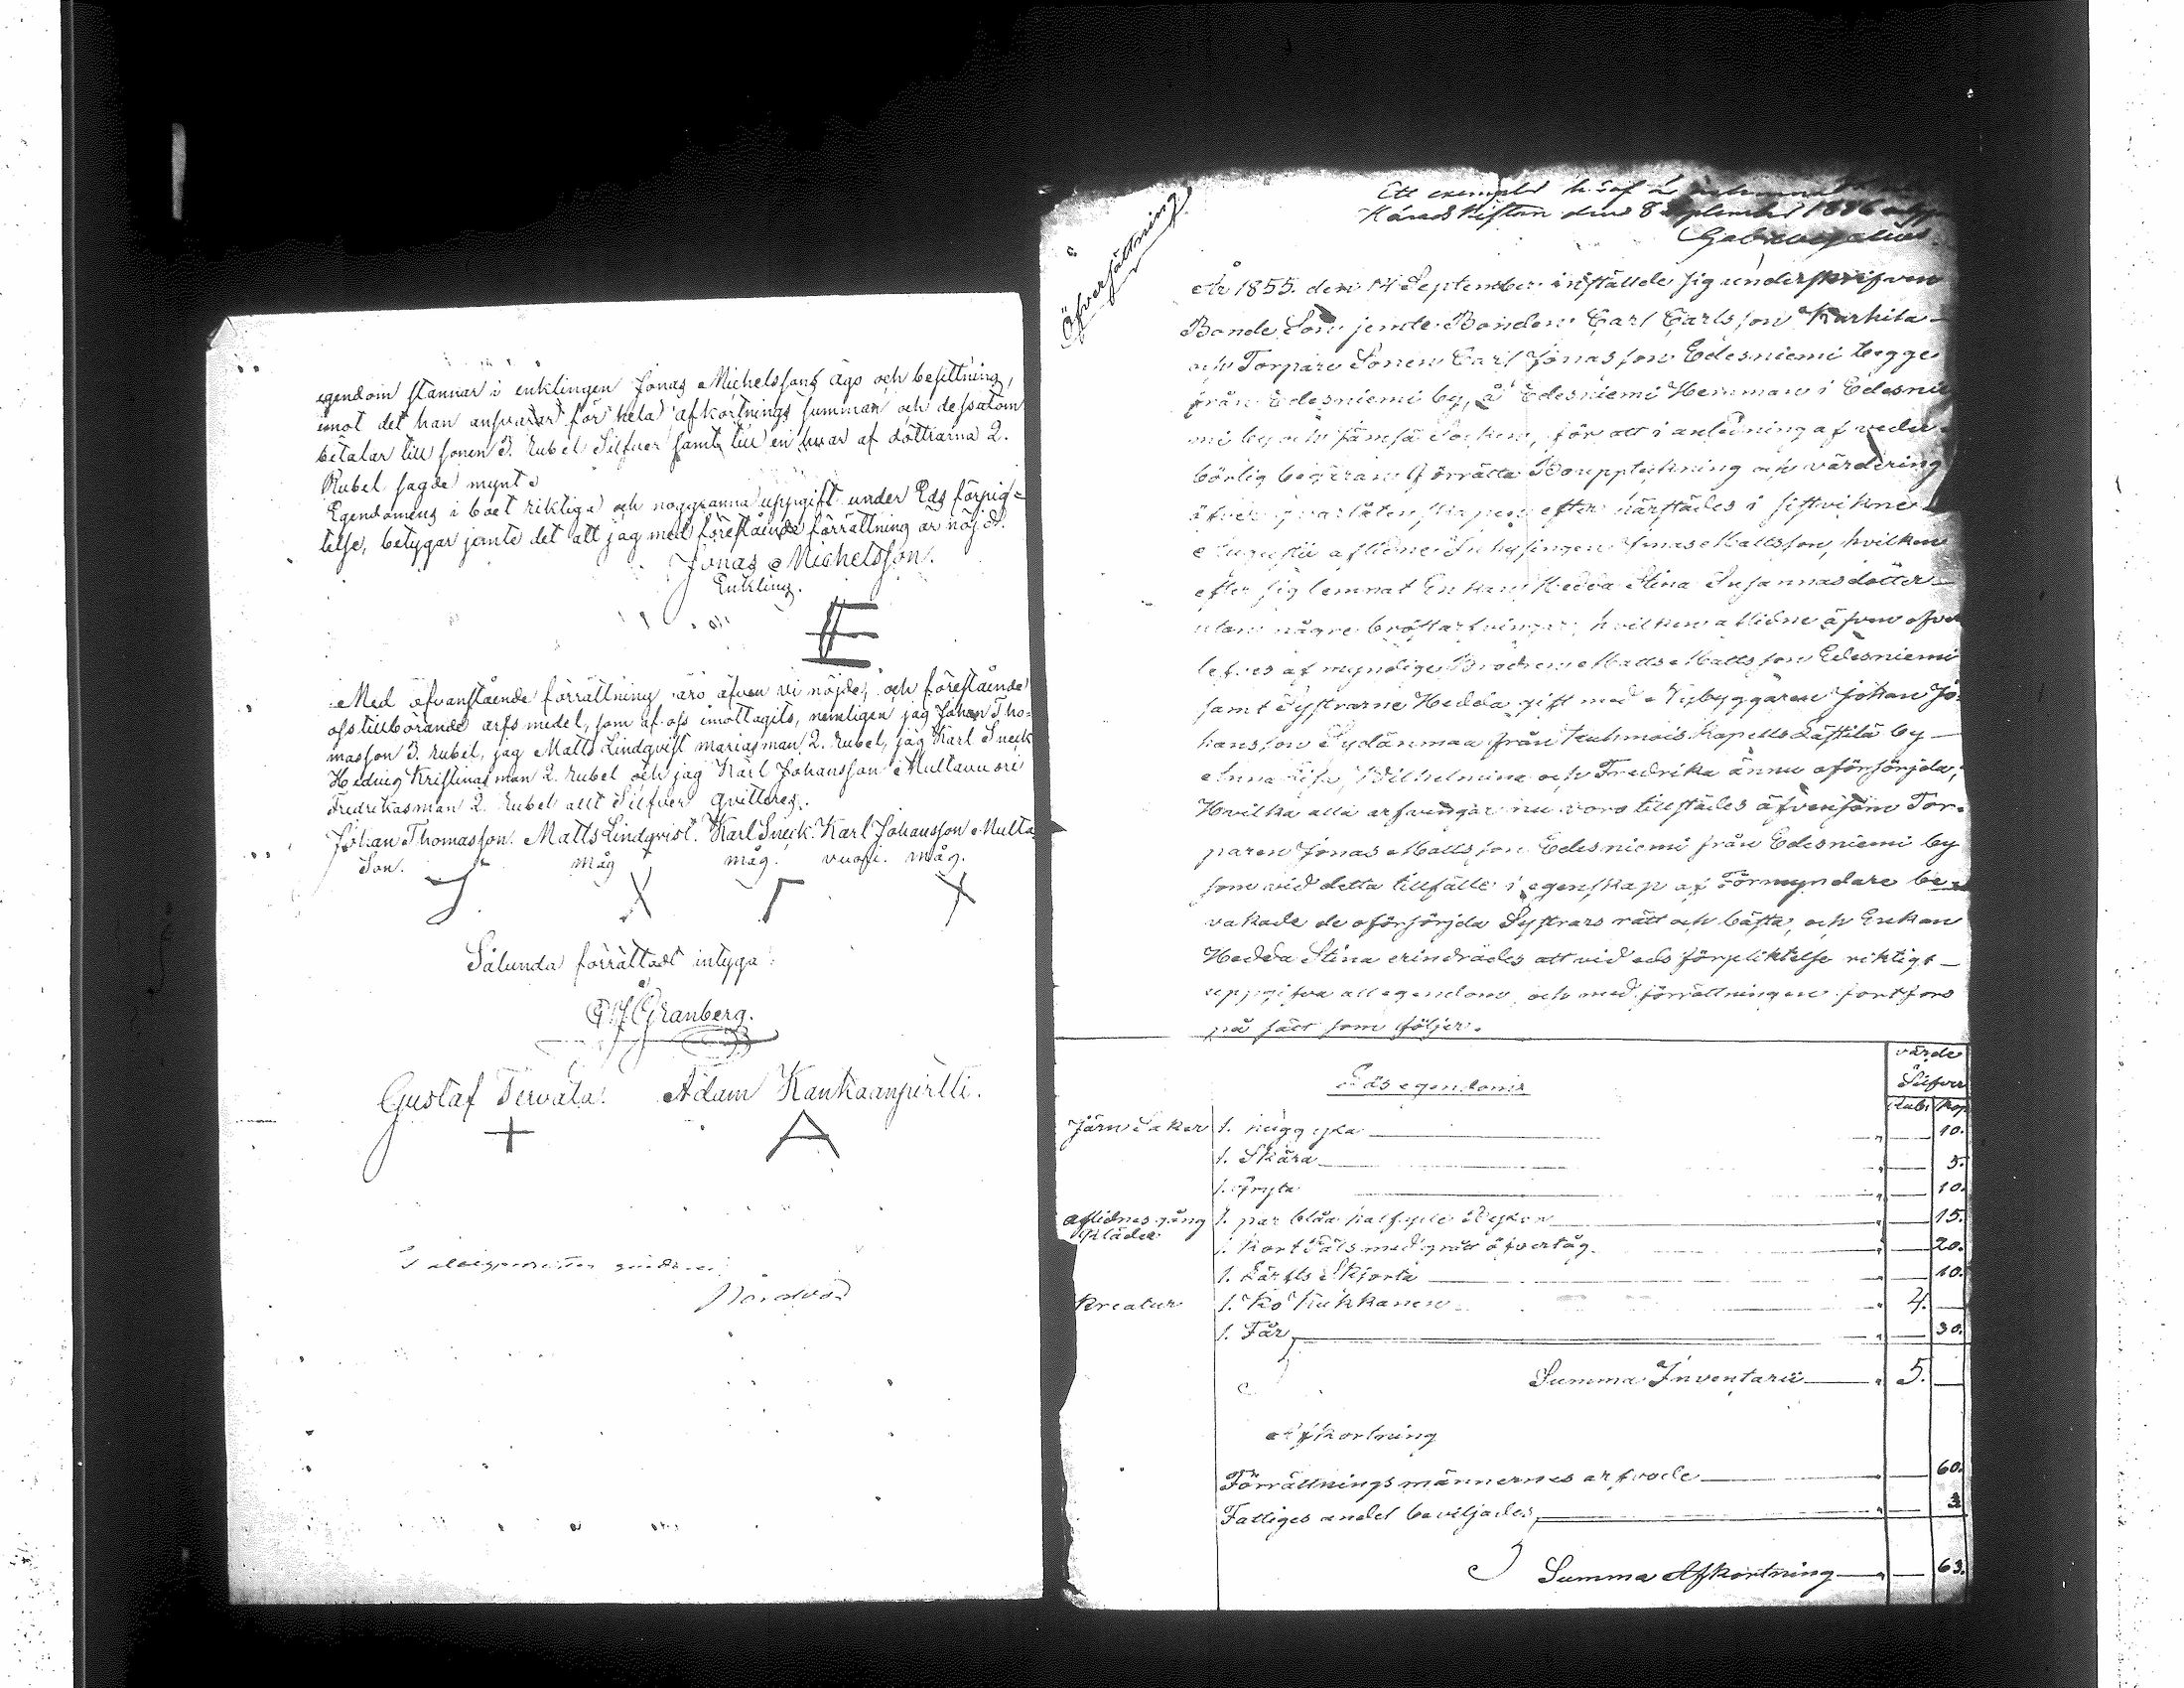 egendom stannar i enklingen Jonas Michelssons ägo och besittning,
imot det han ansvarar för hela afkortnings summan och dessutom
betalar till sonen 3. Rubel Silfver samt till en hvar af döttrarna 2.
Rubel sagde mynt.
Egendomens i boet riktiga och noggranna uppgift under Eds förpig=
telse, betygar jemte det att jag med förestående förrättning är nöjd.
Jonas Michelsson.
Enkling.
Med ofvanstående förrättning äro äfven vi nöjde, och förestående
oss tillhörande arfs medel, som af oss imottagits, nemligen jag Johan Tho=
masson 3. rubel, jag Matts Lindqvist marias man 2. rubel, jag Karl Sneck
Hedvig Kristinas man 2. rubel och jag Karl Johansson Multavuori
Fredrikas man 2. Rubel allt Silfver qvitteres.
Johan Thomasson. Matts Lindqvist. Karl Sneck. Karl Johansson Multa
Son. måg måg. vuori. måg.
Sålunda förrättadt intyga:
Granberg.
Gustaf Tervala. Adam Kankaanpirtti.
+ A
Öfversättning
Ett exemplar häraf
Häradskistan den 8 September 1856
År 1855. den 14 September inställde sig underskrifven
Bonde Son jemte Bonden Carl Carlsson Karhila
och Torpare Sonen Carl Jonasson Edesniemi begge
från Edesniemi by, å Edesniemi Hemman i Edesnie
mi by och Jämsä Socken, för att i anledning af veder
börlig begäran förrätta Bouppteckning och värdering
öfver qvarlåtenskapen efter härstädes i sistvikne
Augusti aflidne Inhysingen Jonas Mattsson, hvilken
efter sig lemnat Enkan Hedda Stina Susannasdotter
utan några bröstarfvingar, hvilken aflidne äfven öfver
lefves af myndige Brodren Matts Mattsson Edesniemi
samt Systrarne Hedda gift med Nybyggaren Johan Jo
hansson Sydänmaa från Kuhmois Kapells Lästilä by
Anna Lisa, Wilhelmina och Fredrika ännu oförsörjda;
Hvilka alla arfvingar nu voro tillstädes äfvensom Tor=
paren Jonas Mattsson Edesniemi från Edesniemi by
som vid detta tillfälle i egenskap af Förmyndare be
vakade de oförsörjda Systrars rätt och bästa, och Enkan
Hedda Stina erindrades att vid eds förpliktelse riktigt
uppgifva all egendom och med förrättningen fortfors
på sätt som följer.
värde
Silfver
Lös egendom Rub. Kop.
Järn Saker 1. hugg yxa 10.
1. Skära 5.
1. Gryta 10.
aflidnes gång 1. par blåa halfylle Byxor 15.
kläder
1. Kort Päls med grått öfvertåg 20.
1. Lärfts Skjorta 10.
Kreatur 1. Ko Kukkanen 4.
1. Får 30.
Summa Inventarii 5.
Afkortning
Förrättningsmännernes arfvode 60.
Fattiges andel beviljades 3
Summa Afkortning 63.